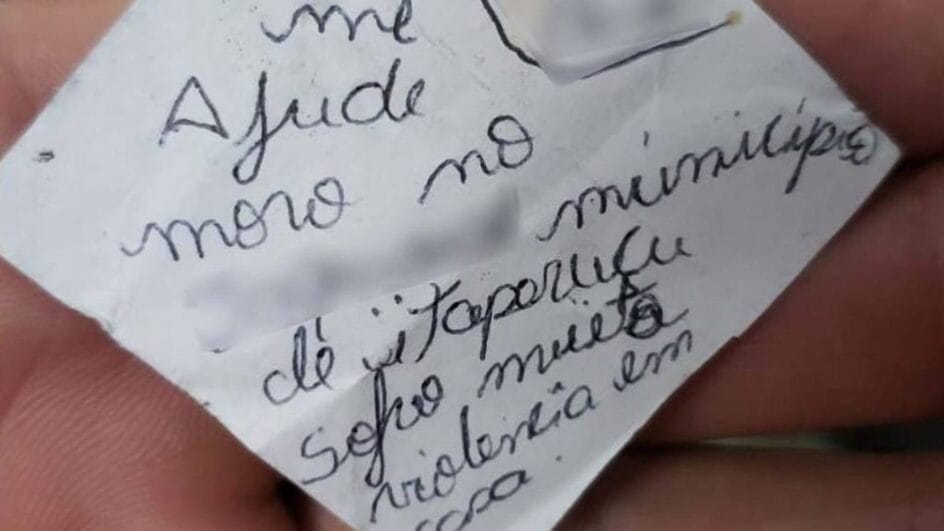 me
Ajude
moro no
município
de itaporucu
sofro muita
violencia em
casa.